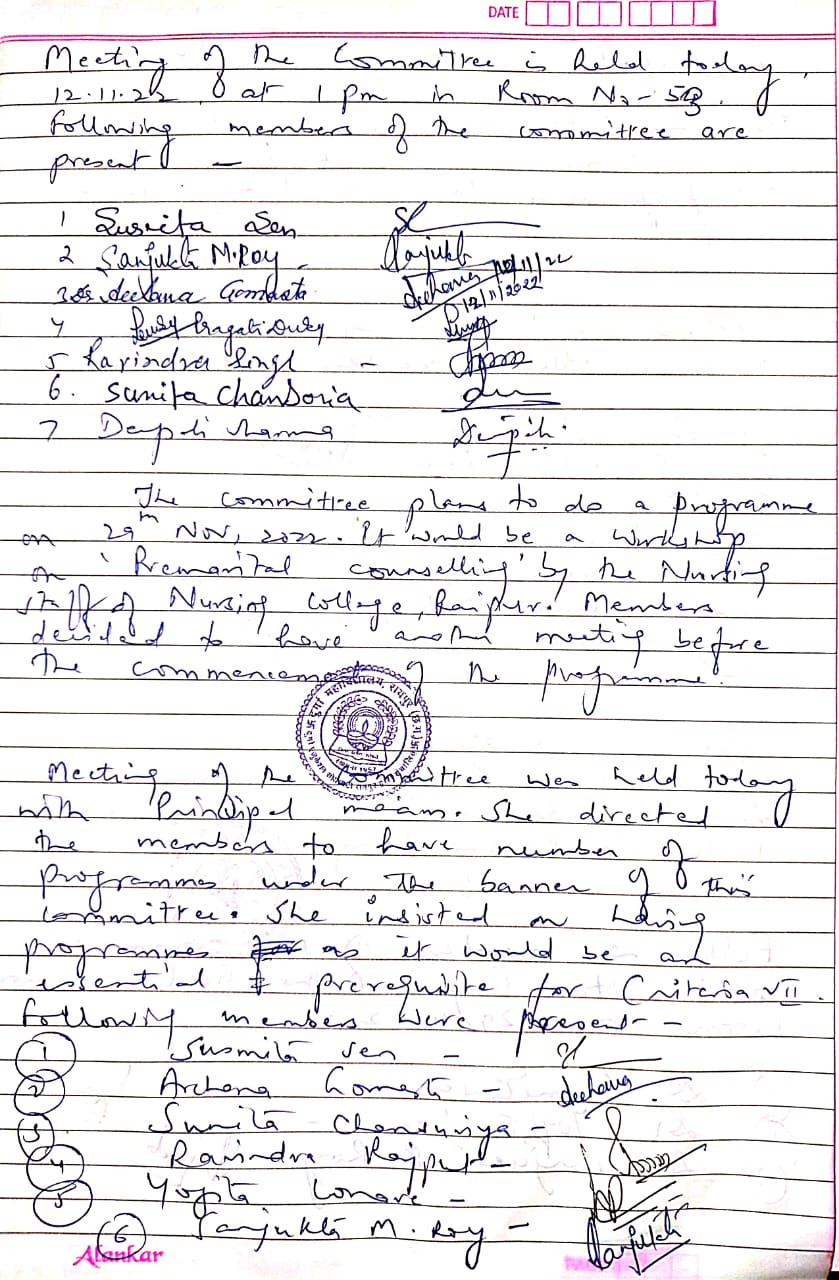 DATE
Meeting of the Committee is held today,
12.11.22 at 1 pm in Room No-
following members of the committee are
present -
1 Susmita Sen
2 Sanjukta M. Roy Sanjukta
3 Archana 12/11/2022
4 Pragati Dubey
5 Ravindra Singh -
6. Sunita Chansoria
7 Deepti Sharma Deepti.
The committee plans to do a programme
on 29th Nov, 2022. It would be a workshop
on 'Premarital counselling' by the Nursing
staff of Nursing College, Raipur. Members
decided to have another meeting before
the commencement of the programme.
दुर्गा महाविद्यालय, रायपुर (छ.ग.)
Meeting of the Committee was held today
with Principal ma'am. She directed
the members to have number of
programmes under the banner of this
committee. She insisted on having
programmes as it would be an
essential prerequisite for Criteria VII.
Following members were present -
1 Susmita Sen -
2 Archana Gomasta - Archana
3 Sunita Chansoriya -
4 Ravindra Rajput -
5 Yogita Lonare -
6 Sanjukta M. Roy - Sanjukta
Alankar
PAGE